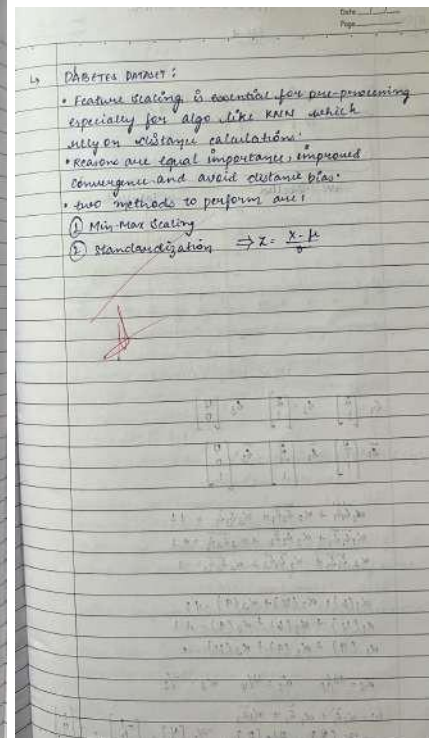 Date
Page
↳ DABETES DATASET :
• Feature scaling is essential for pre-processing
especially for algo like KNN which
rely on distance calculations.
• Reasons are equal importance, improved
convergence and avoid distance bias.
• two methods to perform are:
① Min-Max Scaling
② Standardization ⇒ Z = X - μ / σ